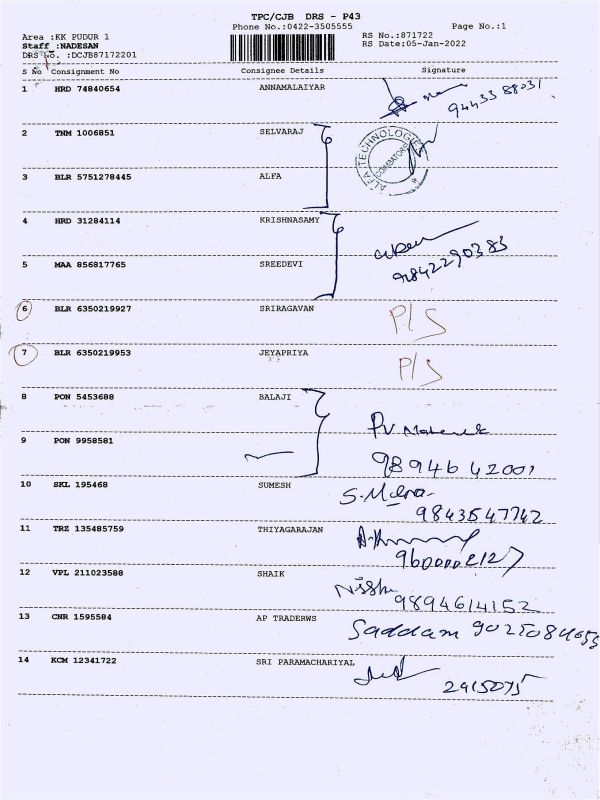 TPC/CJB DRS - P43
Phone No.:0422-3505555 Page No.:1
Area :KK PUDUR 1 RS No.:871722
Staff :NADESAN RS Date:05-Jan-2022
DRS No. :DCJB87172201
S No Consignment No Consignee Details Signature
1 HRD 74840654 ANNAMALAIYAR
9443388031
2 TNM 1006851 SELVARAJ
ALFA TECHNOLOGIES
COIMBATORE
3 BLR 5751278445 ALFA
4 HRD 31284114 KRISHNASAMY
5 MAA 856817765 SREEDEVI
9842290383
6 BLR 6350219927 SRIRAGAVAN P/S
7 BLR 6350219953 JEYAPRIYA P/S
8 PON 5453688 BALAJI
9 PON 9958581
9894642001
10 SKL 195468 SUMESH
9843547742
11 TRZ 135485759 THIYAGARAJAN
9600002127
12 VPL 211023588 SHAIK
9894614152
13 CNR 1595584 AP TRADERWS Saddam
14 KCM 12341722 SRI PARAMACHARIYAL
2915075